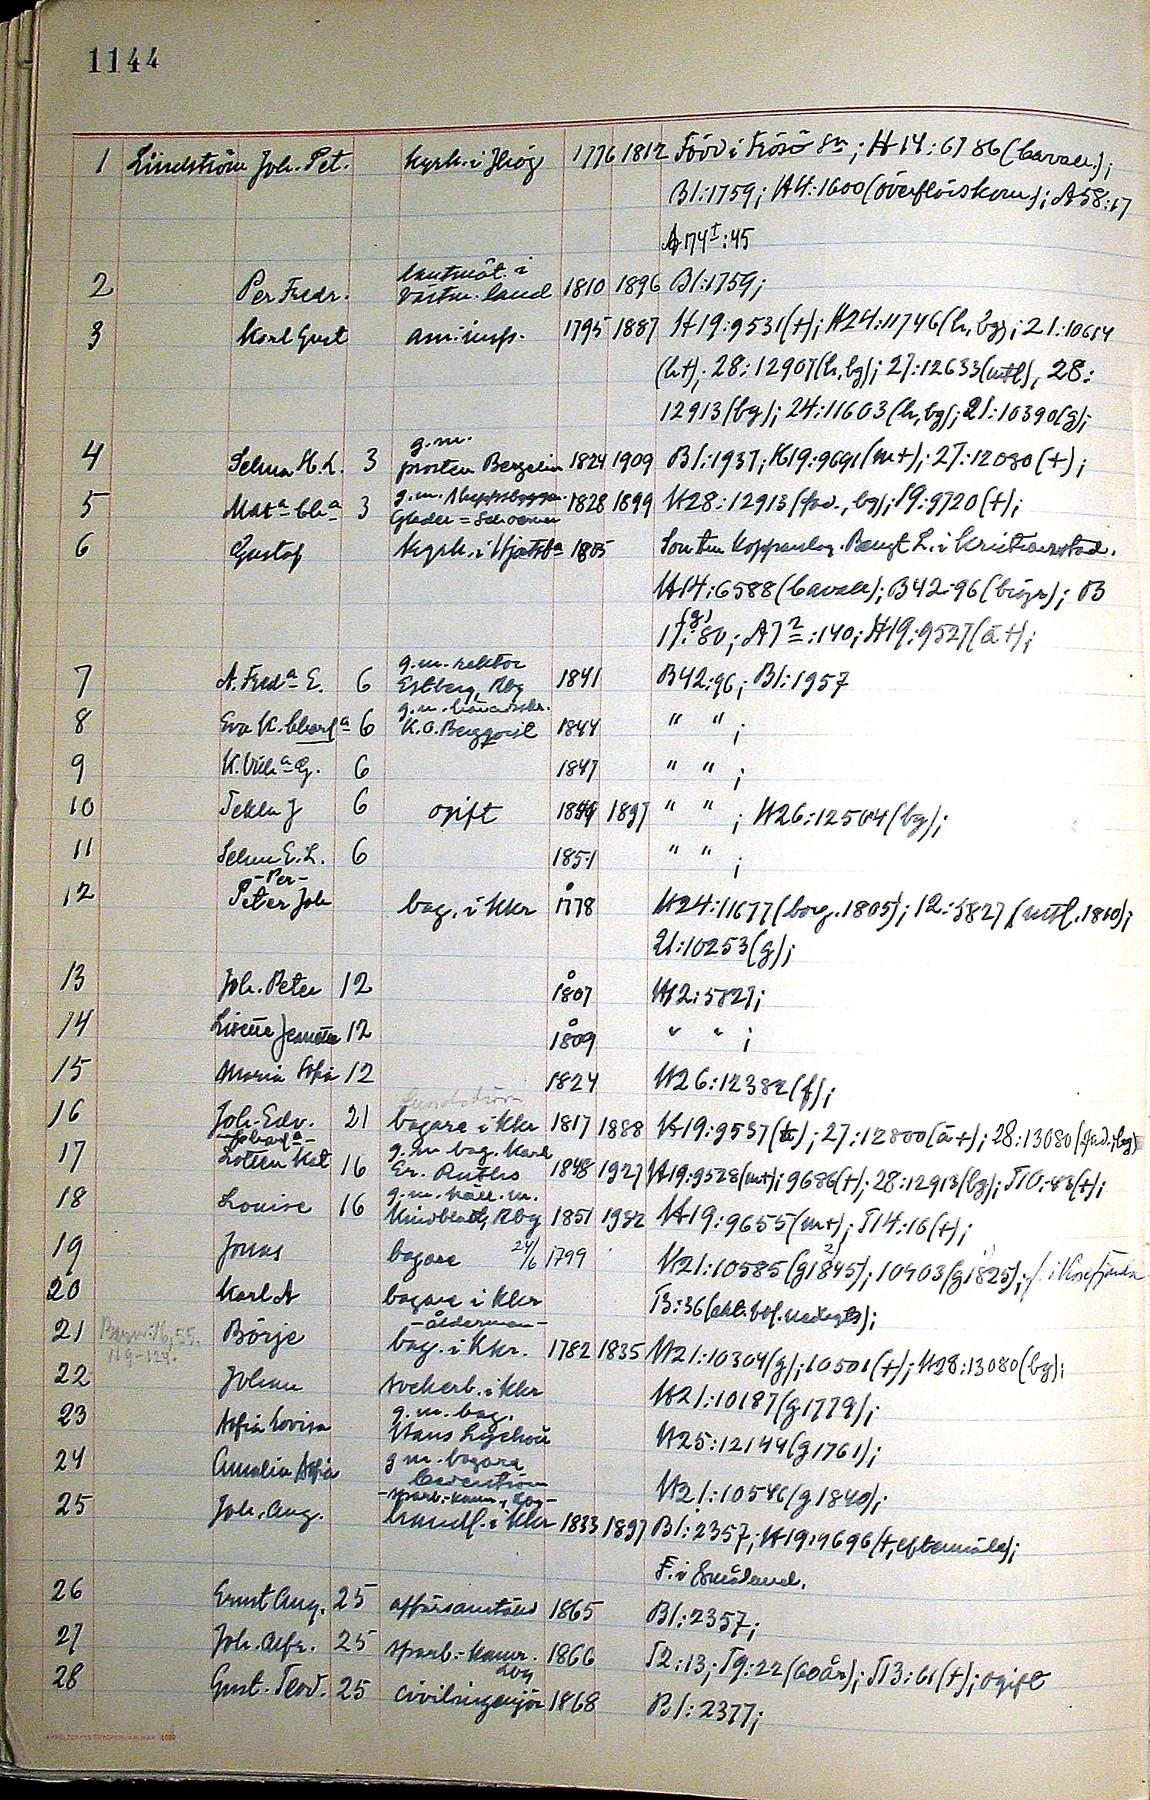 1144
1 Lindström Joh. Pet. kyrk. i Hög 1776 1812 Född i Frösö sn; H14:6786 (cavall.);
B1:1759; H4:1600 (överflödskom.); A58:17
A174:45
2 Per Fredr. lantmät. i Västm. land 1810 1896 B1:1759;
3 Karl Gust 1795 1887 H19:9531 (+); H24:11746 (h, bg); 21:10614
(h+); 28:12907 (h, bg); 27:12633 (mtl), 28:
12913 (bg); 24:11603 (h, bg); 21:10390 (g);
4 Selma H. L. 3 g.m. prosten Bergelin 1824 1909 B1:1937; H19:9691 (m+); 27:12080 (+);
5 3 g.m. 1828 1899 H28:12913 (fod., bg); 19:9720 (+);
6 Gustaf kyrk. i 1805 Son t. Bengt L. i Kristianstad.
H14:6588 (cavall); B42:96 (biogr); B
17:80 (g); A7:140; H19:9527 (ä+);
7 A. Fred:a E. 6 g.m. rektor Estberg, Rbg 1841 B42:96; B1:1957
8 Eva K. Charl:a 6 g.m. K.O. Bergqvist 1844 " " ;
9 K. Vilh:a G. 6 1847 " " ;
10 Tekla J 6 ogift 1849 1897 " " ; H26:12504 (bg);
11 Selma E. L. 6 1851 " " ;
12 Peter Joh -Per- bag. i Kkr 1778 H24:11677 (borg. 1805); 12:5827 (mtl. 1810);
21:10253 (g);
13 Joh. Peter 12 1807 H12:5827;
14 Lisette Jeanette 12 1809 " " ;
15 Maria Sofia 12 1824 H26:12382 (f);
16 Joh. Edv. 21 bagare i Kkr 1817 1888 H19:9537 (+); 27:12800 (ä+); 28:13080
17 16 g.m. bag. Karl Er. 1848 1927 H19:9528 (m+); 9686 (+); 28:12913 (bg); T10:43 (+);
18 Louise 16 g.m. Lindblad, Rbg 1851 1932 H19:9655 (m+); T14:16 (+);
19 Jonas bagare 24/6 1799 H21:10585 (g 1845); 10403 (g 1825);
20 Karl A bagare i Kkr B:36
21 Börje bag. -ålderman- i Kkr. 1782 1835 H21:10304 (g); 10501 (+); H28:13080 (bg);
22 Johan sockerb. i Kkr H21:10187 (g 1779);
23 Sofia Lovisa g.m. bag. Hans H25:12144 (g 1761);
24 Amalia Sofia g m. bagare Cederström H21:10546 (g 1840);
25 Joh. Aug. handl. i Kkr 1833 1897 B1:2357; H19:9696 (+, eftermäle);
F. i Småland.
26 Ernst Aug. 25 1865 B1:2357;
27 Joh. Alfr. 25 sparb.-kamr. 1866 T2:13; T9:22 (60 år); T13:61 (+); ogift
28 Gust. Teod. 25 civilingenjör 1868 B1:2377;